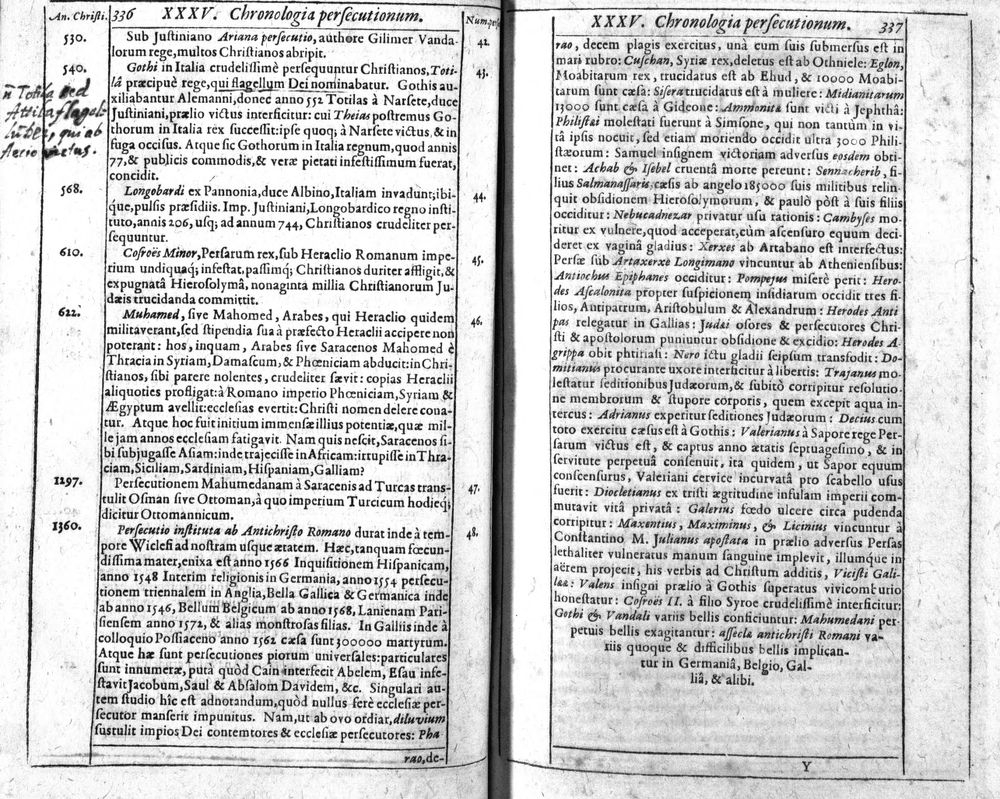 An. Christi. 336 XXXV. Chronologia persecutionum.
530. Sub Justiniano Ariana persecutio, authore Gilimer Vanda-
lorum rege, multos Christianos abripit. 42.
540. Gothi in Italia crudelissimè persequuntur Christianos, Toti- 43.
lâ præcipuè rege, qui flagellum Dei nominabatur. Gothis au-
xiliabantur Alemanni, donec anno 552 Totilas à Narsete, duce
Justiniani, prælio victus interficitur: cui Theias postremus Go-
thorum in Italia rex successit: ipse quoq; à Narsete victus, & in
fuga occisus. Atque sic Gothorum in Italia regnum, quod annis
77, & publicis commodis, & veræ pietati infestissimum fuerat,
concidit.
Totila sed
Attila flagel-
qui ab
victus.
568. Longobardi ex Pannonia, duce Albino, Italiam invadunt; ibi- 44.
que, pulsis præsidiis. Imp. Justiniani, Longobardico regno insti-
tuto, annis 206, usq; ad annum 744, Christianos crudeliter per-
sequuntur.
610. Cosroës Minor, Persarum rex, sub Heraclio Romanum impe- 45.
rium undiquaq; infestat, passimq; Christianos duriter affligit, &
expugnatâ Hierosolymâ, nonaginta millia Christianorum Ju-
dæis trucidanda committit.
622. Muhamed, sive Mahomed, Arabes, qui Heraclio quidem 46.
militaverant, sed stipendia sua à præfecto Heraclii accipere non
poterant: hos, inquam, Arabes sive Saracenos Mahomed è
Thracia in Syriam, Damascum, & Phœniciam abducit: in Chri-
stianos, sibi parere nolentes, crudeliter sævit: copias Heraclii
aliquoties profligat: à Romano imperio Phœniciam, Syriam &
Ægyptum avellit: ecclesias evertit: Christi nomen delere cona-
tur. Atque hoc fuit initium immensæ illius potentiæ, quæ mil-
le jam annos ecclesiam fatigavit. Nam quis nescit, Saracenos si-
bi subjugasse Asiam: inde trajecisse in Africam: irrupisse in Thra-
ciam, Siciliam, Sardiniam, Hispaniam, Galliam?
1297. Persecutionem Mahumedanam à Saracenis ad Turcas trans- 47.
tulit Osman sive Ottoman, à quo imperium Turcicum hodieq;
dicitur Ottomannicum.
1360. Persecutio instituta ab Antichristo Romano durat inde à tem- 48.
pore Wiclefi ad nostram usque ætatem. Hæc, tanquam fœcun-
dissima mater, enixa est anno 1566 Inquisitionem Hispanicam,
anno 1548 Interim religionis in Germania, anno 1554 persecu-
tionem triennalem in Anglia, Bella Gallica & Germanica inde
ab anno 1546, Bellum Belgicum ab anno 1568, Lanienam Pari-
siensem anno 1572, & alias monstrosas filias. In Galliis inde à
colloquio Possiaceno anno 1562 cæsa sunt 300000 martyrum.
Atque hæ sunt persecutiones piorum universales: particulares
sunt innumeræ, putà quòd Cain interfecit Abelem, Esau infe-
stavit Jacobum, Saul & Absalom Davidem, &c. Singulari au-
tem studio hîc est adnotandum, quòd nullus ferè ecclesiæ per-
secutor manserit impunitus. Nam, ut ab ovo ordiar, diluvium
sustulit impios Dei contemtores & ecclesiæ persecutores: Pha
rao, de-
XXXV. Chronologia persecutionum. 337
rao, decem plagis exercitus, unà cum suis submersus est in
mari rubro: Cuschan, Syriæ rex, deletus est ab Othniele: Eglon,
Moabitarum rex, trucidatus est ab Ehud, & 10000 Moabi-
tarum sunt cæsa: Sisera trucidatus est à muliere: Midianitarum
13000 sunt cæsa à Gideone: Ammonitæ sunt victi à Jephthâ:
Philistæi molestati fuerunt à Simsone, qui non tantùm in vi-
tâ ipsis nocuit, sed etiam moriendo occidit ultra 3000 Phili-
stæorum: Samuel insignem victoriam adversus eosdem obti-
net: Achab & Isebel cruentâ morte pereunt: Sennacherib, fi-
lius Salmanassaris, cæsis ab angelo 185000 suis militibus relin-
quit obsidionem Hierosolymorum, & paulò pòst à suis filiis
occiditur: Nebucadnezar privatur usu rationis: Cambyses mo-
ritur ex vulnere, quod acceperat, cùm ascensuro equum deci-
deret ex vaginâ gladius: Xerxes ab Artabano est interfectus:
Persæ sub Artaxerxe Longimano vincuntur ab Atheniensibus:
Antiochus Epiphanes occiditur: Pompejus miserè perit: Hero-
des Ascalonita propter suspicionem insidiarum occidit tres fi-
lios, Antipatrum, Aristobulum & Alexandrum: Herodes Anti
pas relegatur in Gallias: Judæi osores & persecutores Chri-
sti & apostolorum puniuntur obsidione & excidio: Herodes A-
grippa obit phtiriasi: Nero ictu gladii seipsum transfodit: Do-
mitianus procurante uxore interficitur à libertis: Trajanus mo-
lestatur seditionibus Judæorum, & subitò corripitur resolutio-
ne membrorum & stupore corporis, quem excepit aqua in-
tercus: Adrianus experitur seditiones Judæorum: Decius cum
toto exercitu cæsus est à Gothis: Valerianus à Sapore rege Per-
sarum victus est, & captus anno ætatis septuagesimo, & in
servitute perpetuâ consenuit, ita quidem, ut Sapor equum
conscensurus, Valeriani cervice incurvatâ pro scabello usus
fuerit: Diocletianus ex tristi ægritudine insulam imperii com-
mutavit vitâ privatâ: Galerius fœdo ulcere circa pudenda
corripitur: Maxentius, Maximinus, & Licinius vincuntur à
Constantino M. Julianus apostata in prælio adversus Persas
lethaliter vulneratus manum sanguine implevit, illumque in
aërem projecit, his verbis ad Christum additis, Vicisti Gali-
læe: Valens insigni prælio à Gothis superatus vivicomburio
honestatur: Cosroës II. à filio Syroe crudelissimè interficitur:
Gothi & Vandali variis bellis conficiuntur: Mahumedani per-
petuis bellis exagitantur: asseclæ antichristi Romani va-
riis quoque & difficilibus bellis implican-
tur in Germaniâ, Belgio, Gal-
liâ, & alibi.
Y